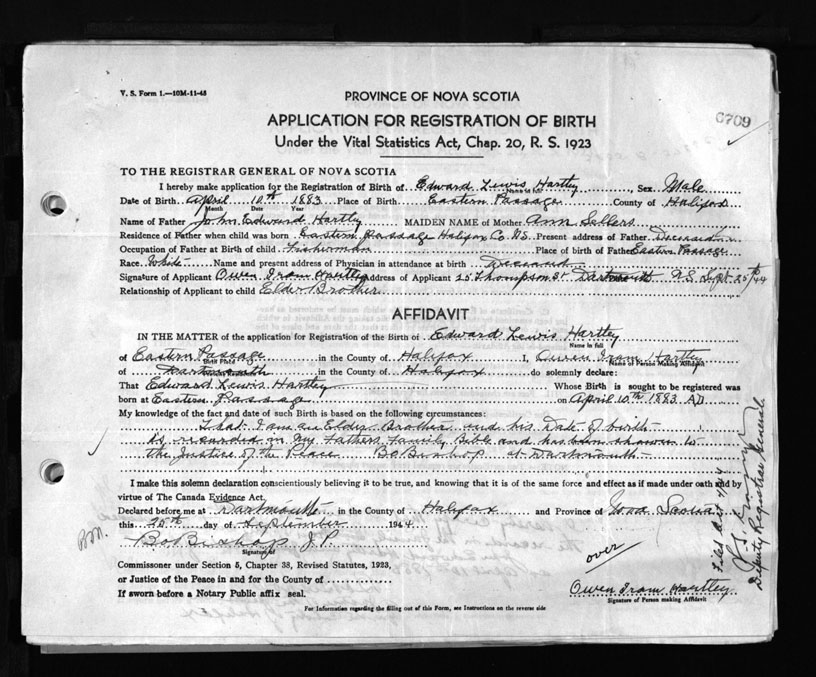 V. S. Form 1.—10M-11-43
PROVINCE OF NOVA SCOTIA
6709
APPLICATION FOR REGISTRATION OF BIRTH
Under the Vital Statistics Act, Chap. 20, R. S. 1923
TO THE REGISTRAR GENERAL OF NOVA SCOTIA
I hereby make application for the Registration of Birth of Edward Lewis Hartley, Sex Male
Name in full
Date of Birth April 10th 1883 Place of Birth Eastern Passage County of Halifax
Month Date Year
Name of Father John Edward Hartley MAIDEN NAME of Mother Ann Sellers
Residence of Father when child was born Eastern Passage Halifax Co N.S. Present address of Father Deceased
Occupation of Father at Birth of child Fisherman Place of birth of Father Eastern Passage
Race White Name and present address of Physician in attendance at birth Deceased
Signature of Applicant Owen Iram Hartley Address of Applicant 25 Thompson St Dartmouth N.S. Sept 25th 44
Relationship of Applicant to child Elder Brother
AFFIDAVIT
IN THE MATTER of the application for Registration of the Birth of Edward Lewis Hartley
Name in full
of Eastern Passage in the County of Halifax I, Owen Iram Hartley
Birth Place Name of Person Making Affidavit
of Dartmouth in the County of Halifax do solemnly declare:
That Edward Lewis Hartley Whose Birth is sought to be registered was
born at Eastern Passage on April 10th 1883 AD
My knowledge of the fact and date of such Birth is based on the following circumstances:
That I am an Elder Brother and his Date of birth
is recorded in my Fathers Family Bible and has been shown to
the Justice of the Peace Bo Bishop at Dartmouth
I make this solemn declaration conscientiously believing it to be true, and knowing that it is of the same force and effect as if made under oath and by
virtue of The Canada Evidence Act.
Declared before me at Dartmouth in the County of Halifax and Province of Nova Scotia
this 25th day of September 1944
Bo Bishop J.P.
Signature of
over
Commissioner under Section 5, Chapter 38, Revised Statutes, 1923,
or Justice of the Peace in and for the County of
If sworn before a Notary Public affix seal.
Owen Iram Hartley
Signature of Person making Affidavit
For Information regarding the filling out of this Form, see Instructions on the reverse side
Filed Oct 4/44
Deputy Registrar General